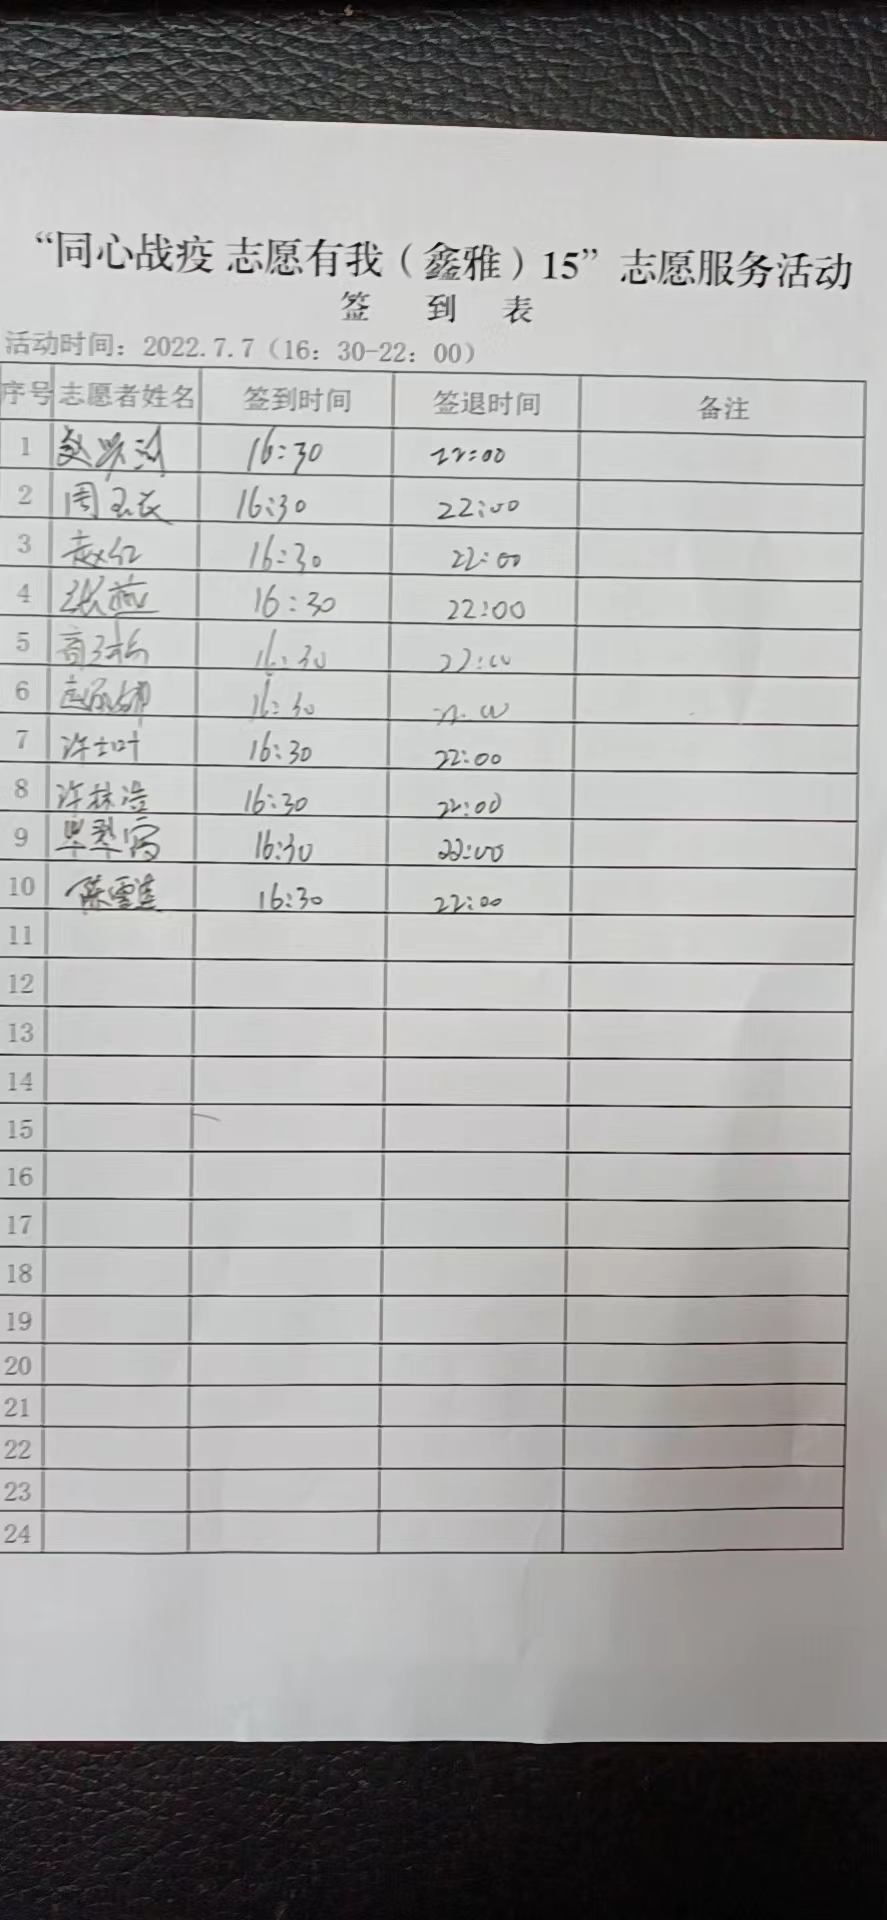 “同心战疫 志愿有我（鑫雅）15”志愿服务活动
签 到 表
活动时间：2022.7.7（16：30-22：00）
序号 志愿者姓名 签到时间 签退时间 备注
1 16:30 22:00
2 周玉衣 16:30 22:00
3 赵红 16:30 22:00
4 张燕 16:30 22:00
5 16:30 22:00
6 16:30 22:00
7 许士叶 16:30 22:00
8 许林浩 16:30 22:00
9 毕翠富 16:30 22:00
10 陈雪莲 16:30 22:00
11
12
13
14
15
16
17
18
19
20
21
22
23
24